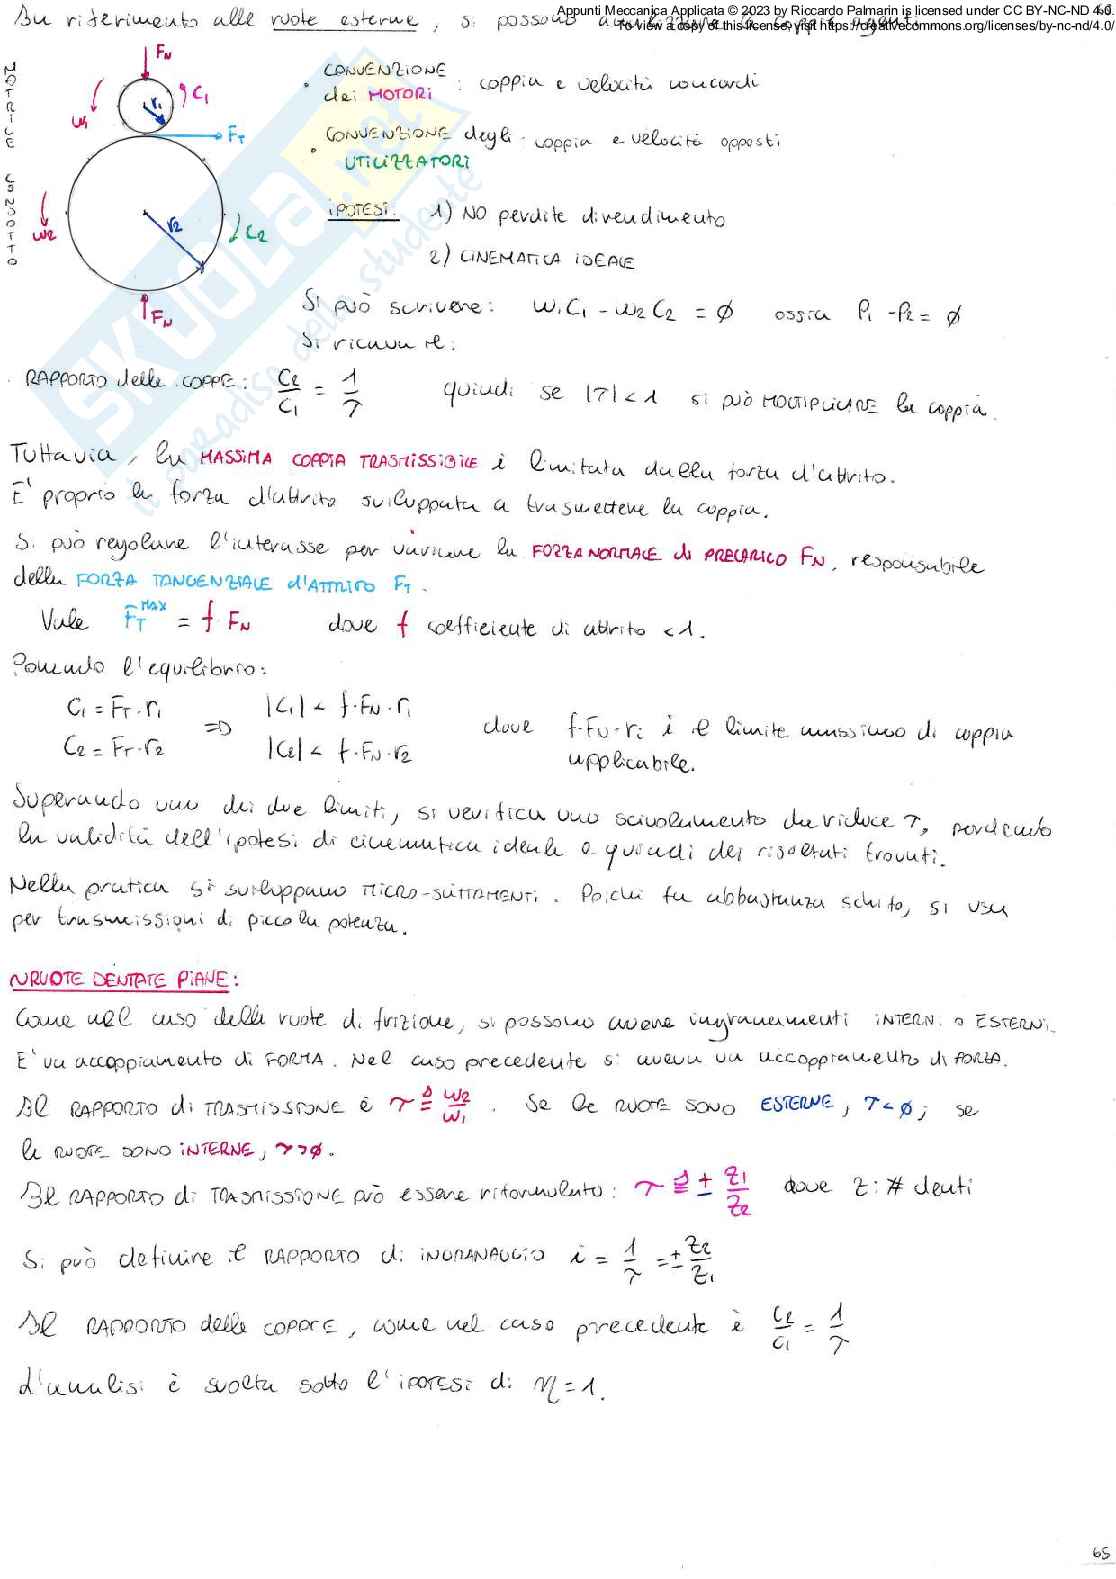 Appunti Meccanica Applicata © 2023 by Riccardo Palmarin is licensed under CC BY-NC-ND 4.0.
To view a copy of this license, visit https://creativecommons.org/licenses/by-nc-nd/4.0/
In riferimento alle ruote esterne, si possono le coppie agenti.
MOTRICE CONDOTTO
FN
ω1 r1 C1
FT
ω2 r2 C2
FN
• CONVENZIONE dei MOTORI : coppia e velocità concordi
• CONVENZIONE degli UTILIZZATORI : coppia e velocità opposti
IPOTESI: 1) NO perdite di rendimento
2) CINEMATICA IDEALE
Si può scrivere: ω1C1 - ω2C2 = ∅ ossia P1 - P2 = ∅
Si ricava il:
• RAPPORTO delle COPPIE: C2/C1 = 1/τ quindi se |τ| < 1 si può MOLTIPLICARE la coppia.
Tuttavia, la MASSIMA COPPIA TRASMISSIBILE è limitata dalla forza d'attrito.
E' proprio la forza d'attrito sviluppata a trasmettere la coppia.
Si può regolare l'interasse per variare la FORZA NORMALE di PRECARICO FN, responsabile
della FORZA TANGENZIALE d'ATTRITO FT.
Vale FT^MAX = f FN dove f coefficiente di attrito < 1.
Ponendo l'equilibrio:
C1 = FT · r1 ⇒ |C1| < f · FN · r1
C2 = FT · r2 |C2| < f · FN · r2 dove f·FN·ri è il limite massimo di coppia
applicabile.
Superando uno dei due limiti, si verifica uno scivolamento che riduce τ, perdendo
la validità dell'ipotesi di cinematica ideale e quindi dei risultati trovati.
Nella pratica si sviluppano MICRO-SLITTAMENTI. Poichè fa abbastanza schifo, si usa
per trasmissioni di piccola potenza.
RUOTE DENTATE PIANE:
Come nel caso delle ruote di frizione, si possono avere ingranamenti INTERNI o ESTERNI.
E' un accoppiamento di FORMA. Nel caso precedente si aveva un accoppiamento di FORZA.
Il RAPPORTO di TRASMISSIONE è τ ≜ ω2/ω1. Se le RUOTE SONO ESTERNE, τ < ∅; se
le RUOTE SONO INTERNE, τ > ∅.
Il RAPPORTO di TRASMISSIONE può essere riformulato: τ ≜ ± Z1/Z2 dove Z: # denti
Si può definire il RAPPORTO di INGRANAGGIO i = 1/τ = ± Z2/Z1
Il RAPPORTO delle COPPIE, come nel caso precedente è C2/C1 = 1/τ
L'analisi è svolta sotto l'IPOTESI di η = 1.
65
SKUOLA.net
il paradiso dello studente